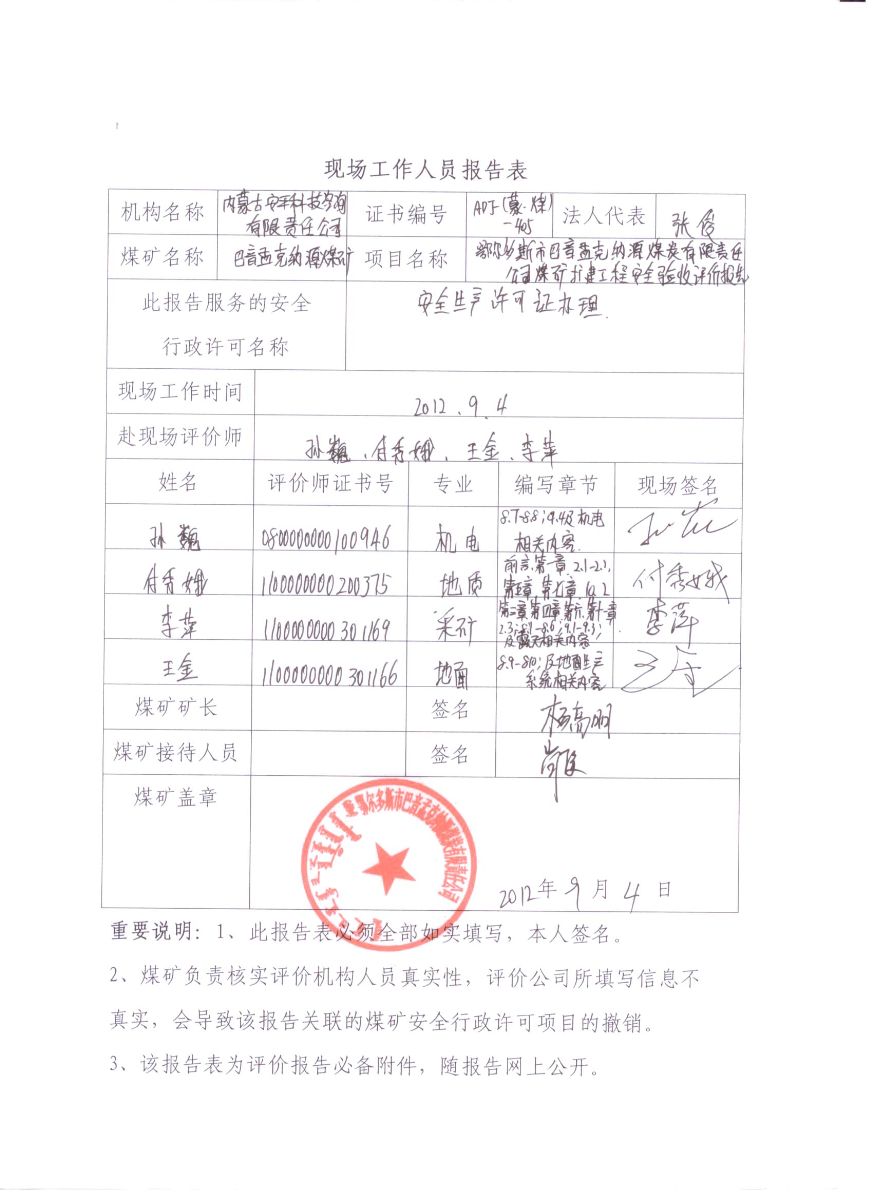 现场工作人员报告表
机构名称 内蒙古安平科技咨询 证书编号 APJ(蒙·煤) 法人代表 张俊
有限责任公司 -405
煤矿名称 巴音孟克纳源煤矿 项目名称 鄂尔多斯市巴音孟克纳源煤炭有限责任
公司煤矿扩建工程安全验收评价报告
此报告服务的安全 安全生产许可证办理
行政许可名称
现场工作时间 2012.9.4
赴现场评价师 孙巍、付秀娥、王金、李萍
姓名 评价师证书号 专业 编写章节 现场签名
孙巍 0800000000100946 机电 8.7-8.8;9.4及机电
相关内容
付秀娥 1100000000200375 地质 前言、第一章、2.1-2.2,
付秀娥
李萍 1100000000301169 采矿
2.3;8.1-8.6;9.1-9.3;
及露天相关内容
李萍
王金 1100000000301166 地面 8.9-8.10;及地面生产
系统相关内容
煤矿矿长 签名 杨高明
煤矿接待人员 签名
煤矿盖章
鄂尔多斯市巴音孟克纳源煤炭有限责任公司
2012年9月4日
重要说明：1、此报告表必须全部如实填写，本人签名。
2、煤矿负责核实评价机构人员真实性，评价公司所填写信息不
真实，会导致该报告关联的煤矿安全行政许可项目的撤销。
3、该报告表为评价报告必备附件，随报告网上公开。